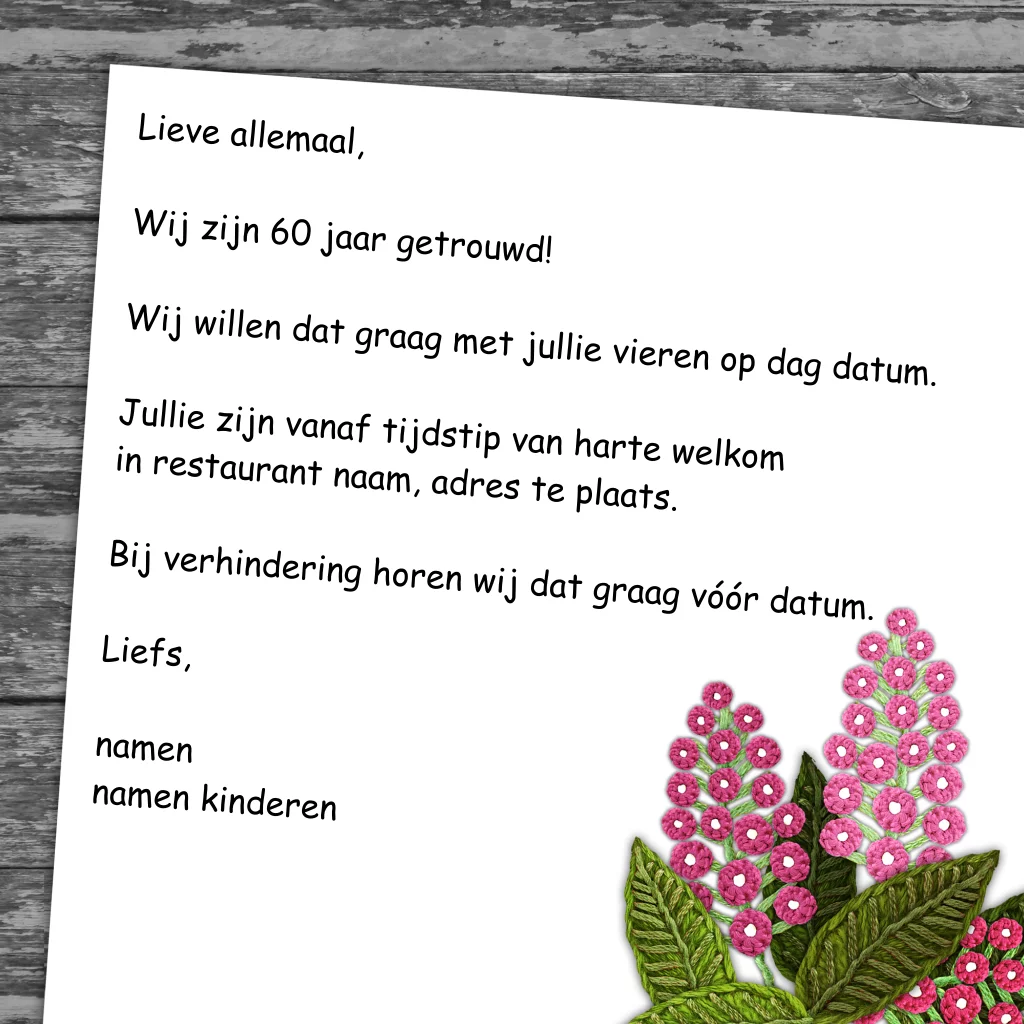 Lieve allemaal,
Wij zijn 60 jaar getrouwd!
Wij willen dat graag met jullie vieren op dag datum.
Jullie zijn vanaf tijdstip van harte welkom
in restaurant naam, adres te plaats.
Bij verhindering horen wij dat graag vóór datum.
Liefs,
namen
namen kinderen